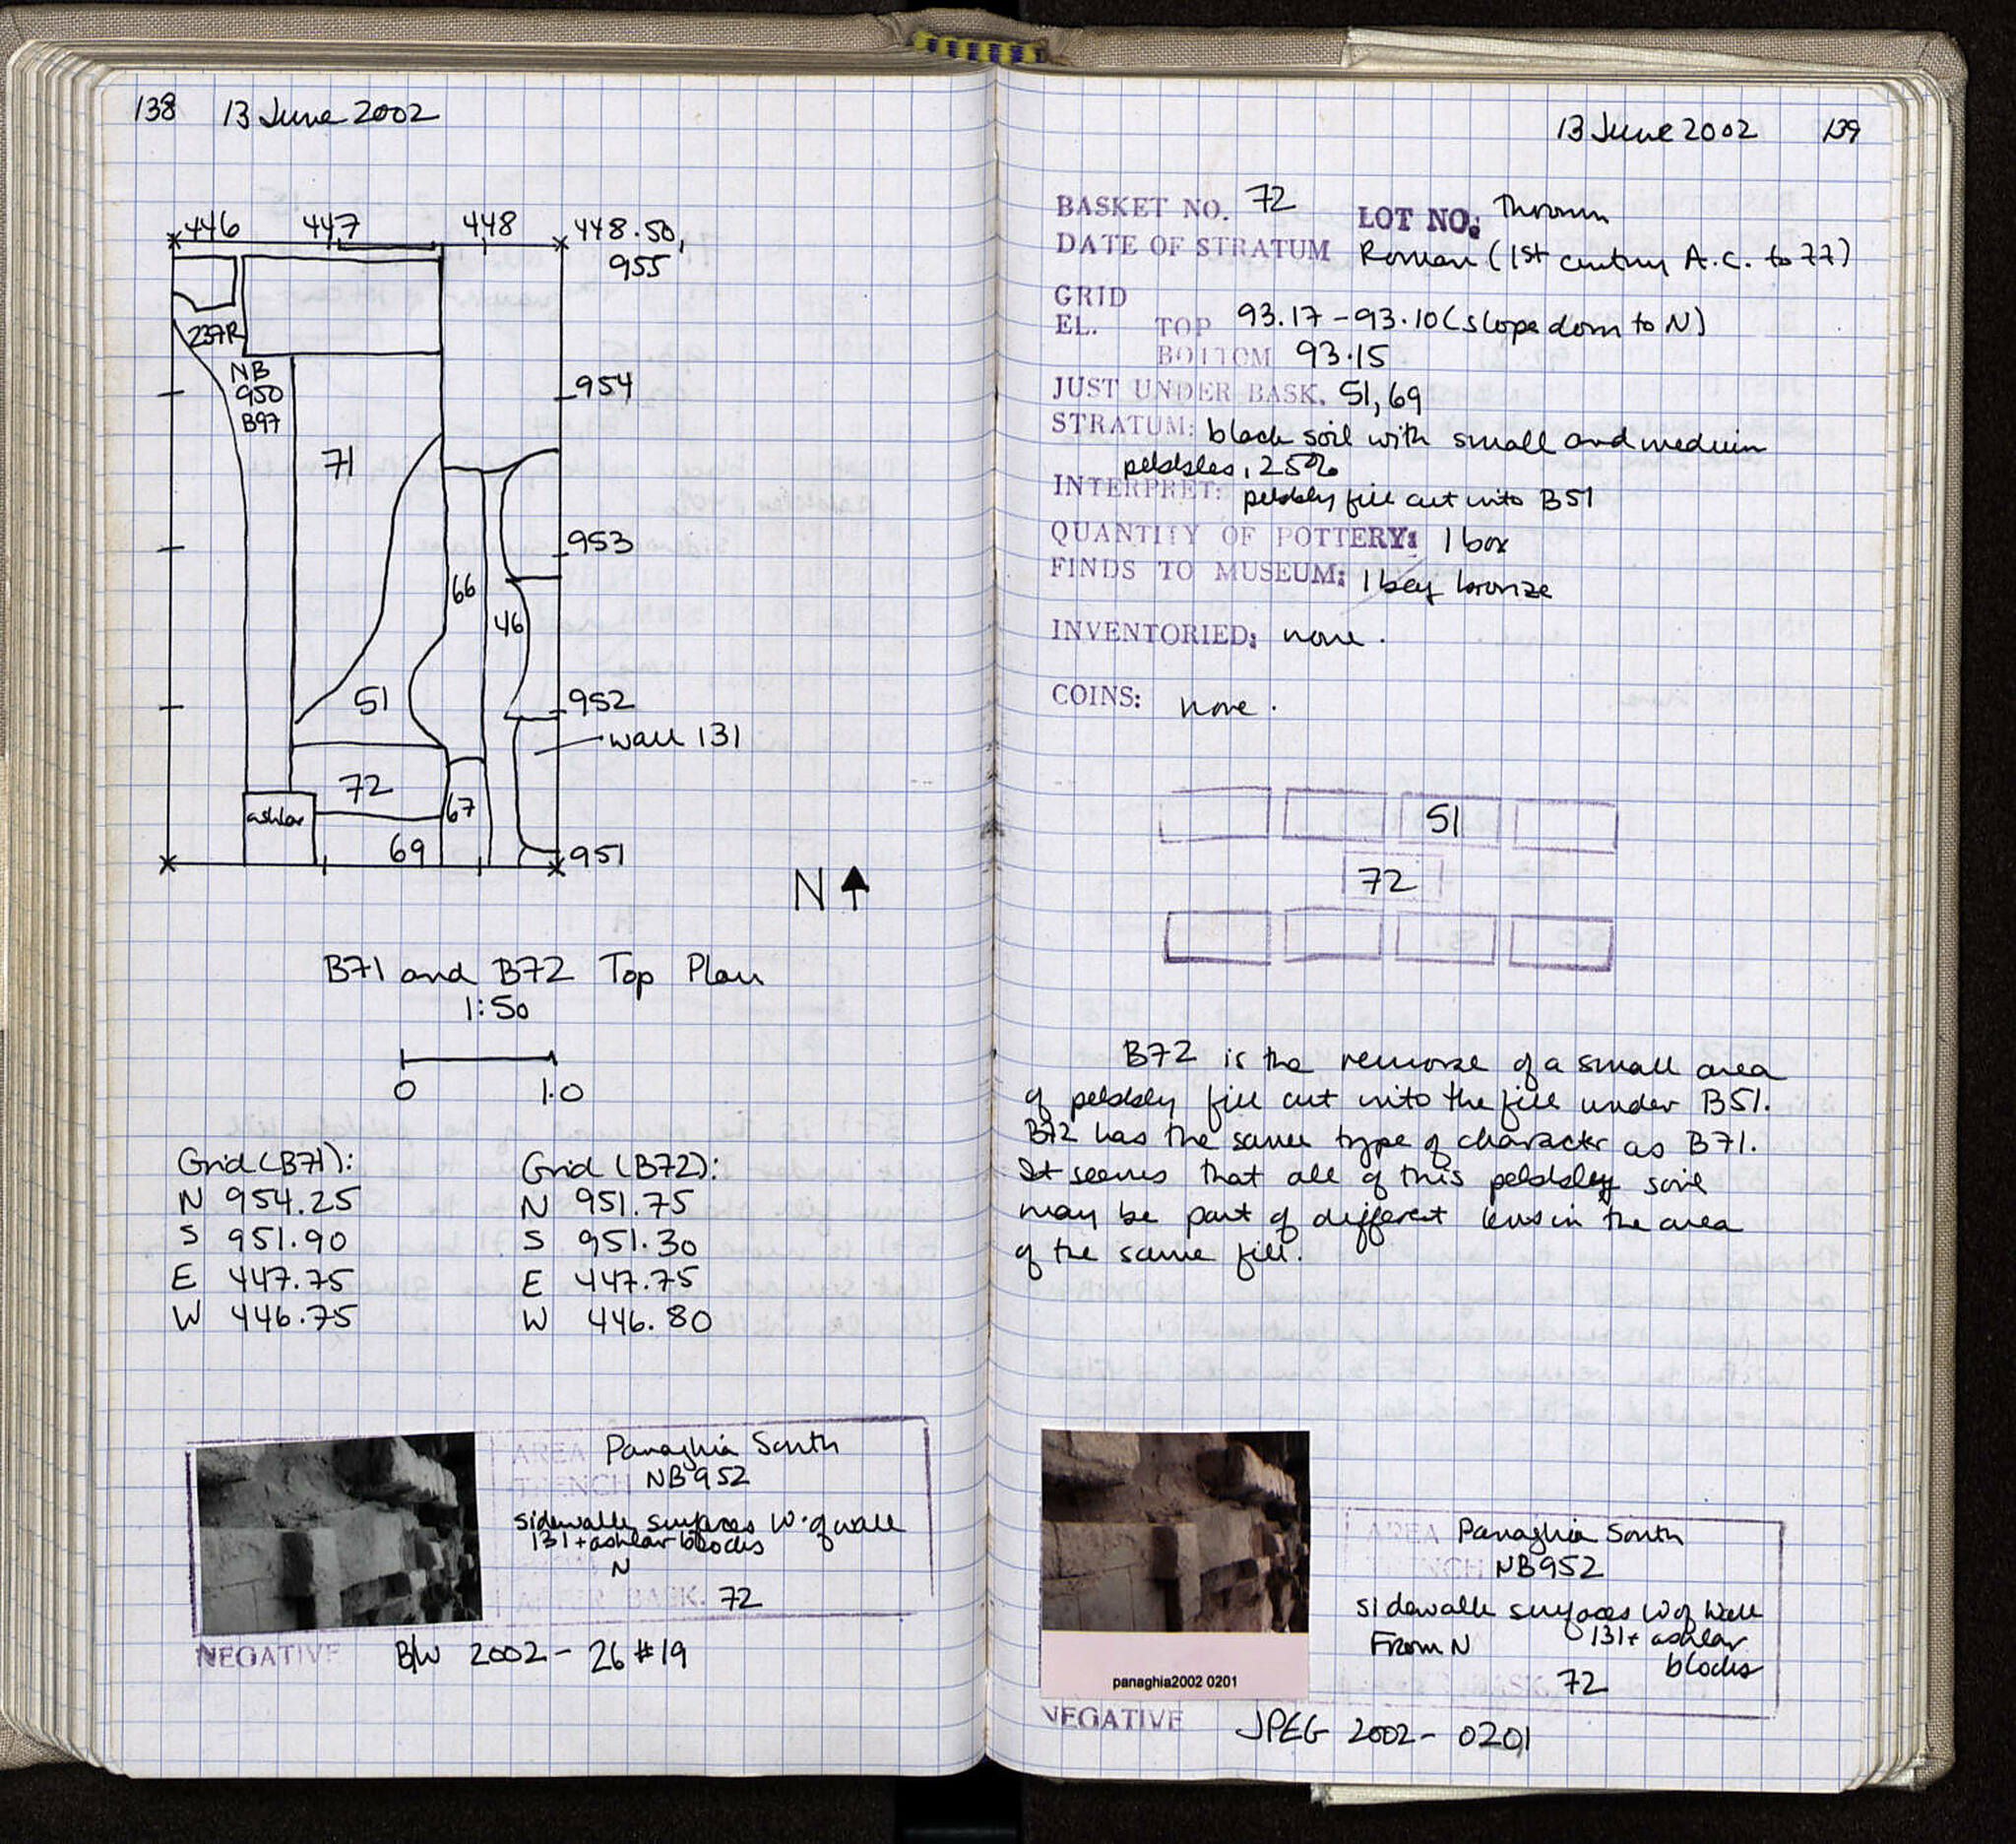 138 13 June 2002
446 447 448 448.50,
955
237R
NB
950
B97
954
71
953
66
46
51
952
wall 131
72
67
ashlar
69
951
N
B71 and B72 Top Plan
1:50
0 1.0
Grid (B71):
N 954.25
S 951.90
E 447.75
W 446.75
Grid (B72):
N 951.75
S 951.30
E 447.75
W 446.80
AREA Panaghia South
TRENCH NB952
sidewalk surfaces W. of wall
131 + ashlar blocks
N
AFTER BASK. 72
NEGATIVE B/W 2002 - 26 #19
13 June 2002 139
BASKET NO. 72 LOT NO. Thrown
DATE OF STRATUM Roman (1st century A.C. to 77)
GRID
EL. TOP 93.17 - 93.10 (slope down to N)
BOTTOM 93.15
JUST UNDER BASK. 51, 69
STRATUM: black soil with small and medium
pebbles, 25%
INTERPRET: pebbly fill cut into B51
QUANTITY OF POTTERY: 1 box
FINDS TO MUSEUM: 1 bag bronze
INVENTORIED: none.
COINS: none.
51
72
B72 is the removal of a small area
of pebbly fill cut into the fill under B51.
B72 has the same type of character as B71.
It seems that all of this pebbley soil
may be part of different lens in the area
of the same fill.
AREA Panaghia South
TRENCH NB952
sidewalk surfaces W of Wall
From N 131+ ashlar
blocks
BASK. 72
panaghia2002 0201
NEGATIVE JPEG 2002- 0201